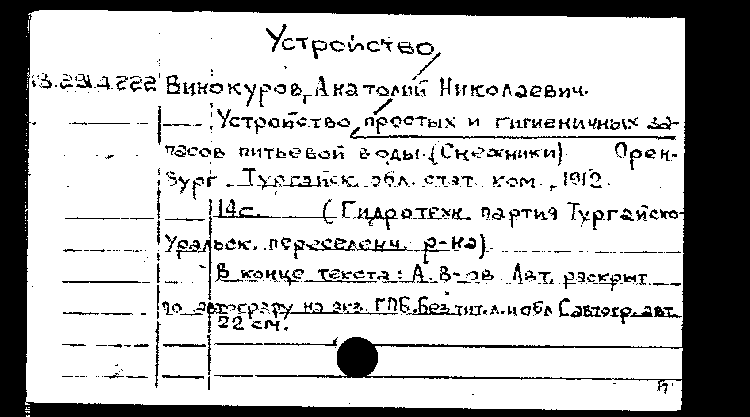 Устройство
18.291.4.222 Винокуров, Анатолий Николаевич.
Устройство простых и гигиеничных за-
пасов питьевой воды. (Снежники). Орен-
бург. Тургайск. обл. стат. ком., 1912.
14с. (Гидротехн. партия Тургайско-
Уральск. переселенч. р-на).
В конце текста: А. В-ов. Авт. раскрыт
по автографу на экз. ГПБ. Без тит. л. и обл. С автогр. авт.
22 см.